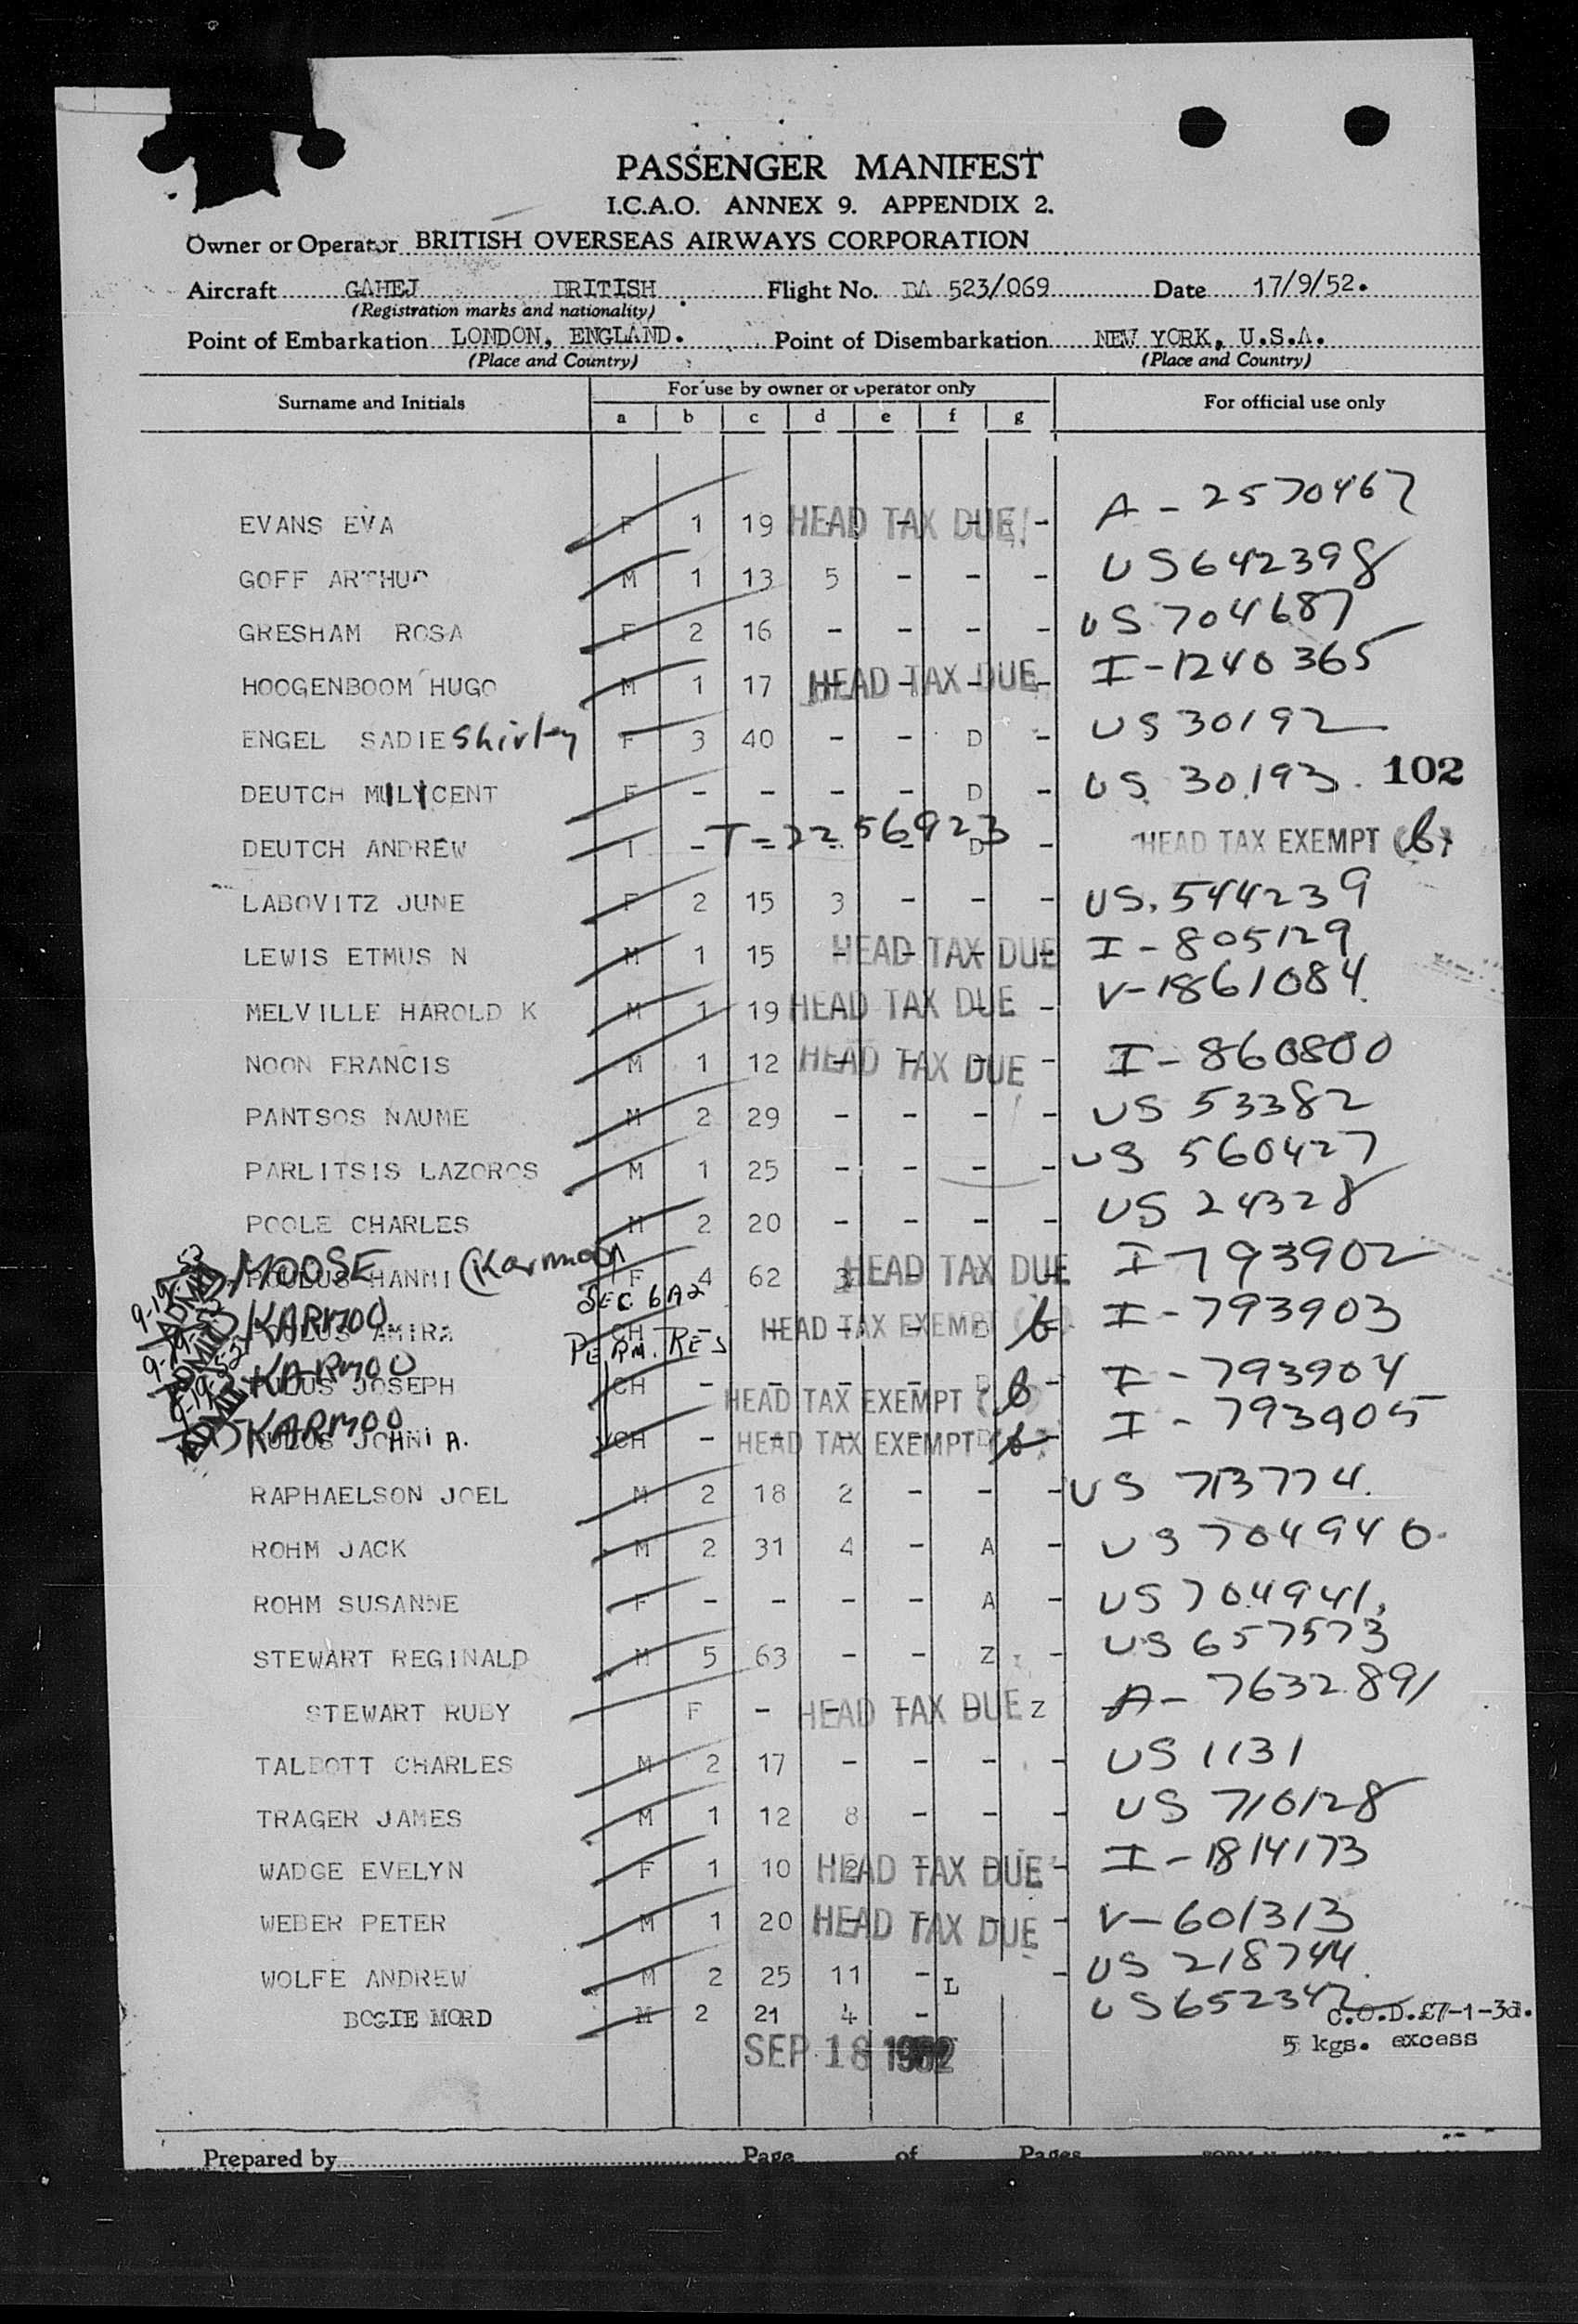 PASSENGER MANIFEST
I.C.A.O. ANNEX 9. APPENDIX 2.
Owner or Operator BRITISH OVERSEAS AIRWAYS CORPORATION
Aircraft GAHEJ BRITISH Flight No. BA 523/069 Date 17/9/52.
(Registration marks and nationality)
Point of Embarkation LONDON, ENGLAND. Point of Disembarkation NEW YORK, U.S.A.
(Place and Country) (Place and Country)
Surname and Initials For use by owner or operator only For official use only
a b c d e f g
EVANS EVA F 1 19 HEAD TAX DUE - A-2570467
GOFF ARTHUR M 1 13 5 - - - US642398
GRESHAM ROSA F 2 16 - - - - US 704687
HOOGENBOOM HUGO M 1 17 HEAD TAX DUE - I-1240365
ENGEL SADIE Shirley F 3 40 - - D - US 30192
DEUTCH MILYCENT F - - - - D - US 30193 102
DEUTCH ANDREW I - T-2256923 D - HEAD TAX EXEMPT (b)
LABOVITZ JUNE F 2 15 3 - - - US. 544239
LEWIS ETMUS N M 1 15 - HEAD TAX DUE I-805129
MELVILLE HAROLD K M 1 19 HEAD TAX DUE - V-1861084
NOON FRANCIS M 1 12 HEAD TAX DUE - I-860800
PANTSOS NAUME M 2 29 - - - - US 53382
PARLITSIS LAZOROS M 1 25 - - - - US 560427
POOLE CHARLES M 2 20 - - - - US 24328
MOOSE (Karmoo)
POULUS HANNI F 4 62 3 HEAD TAX DUE I-793902
SEC. 6A2
KARMOO
POULUS AMIRA CH HEAD TAX EXEMPT D b I-793903
PERM. RES
KARMOO
POULUS JOSEPH CH - - - - D - I-793904
HEAD TAX EXEMPT (b
KARMOO
POULUS JOHNI A. CH - HEAD TAX EXEMPT (b) I-793905
RAPHAELSON JOEL M 2 18 2 - - - US 713774
ROHM JACK M 2 31 4 - A - US 704940
ROHM SUSANNE F - - - - A - US 704941
STEWART REGINALD M 5 63 - - Z - US 657573
STEWART RUBY F - HEAD TAX DUE Z A-7632891
TALBOTT CHARLES M 2 17 - - - - US 1131
TRAGER JAMES M 1 12 8 - - - US 710128
WADGE EVELYN F 1 10 2 HEAD TAX DUE - I-1814173
WEBER PETER M 1 20 HEAD TAX DUE - V-601313
WOLFE ANDREW M 2 25 11 - L - US 218744
BOGIE MORD M 2 21 4 - US652342
C.O.D.£7-1-3d.
5 kgs. excess
SEP 18 1952
Prepared by Page of Pages